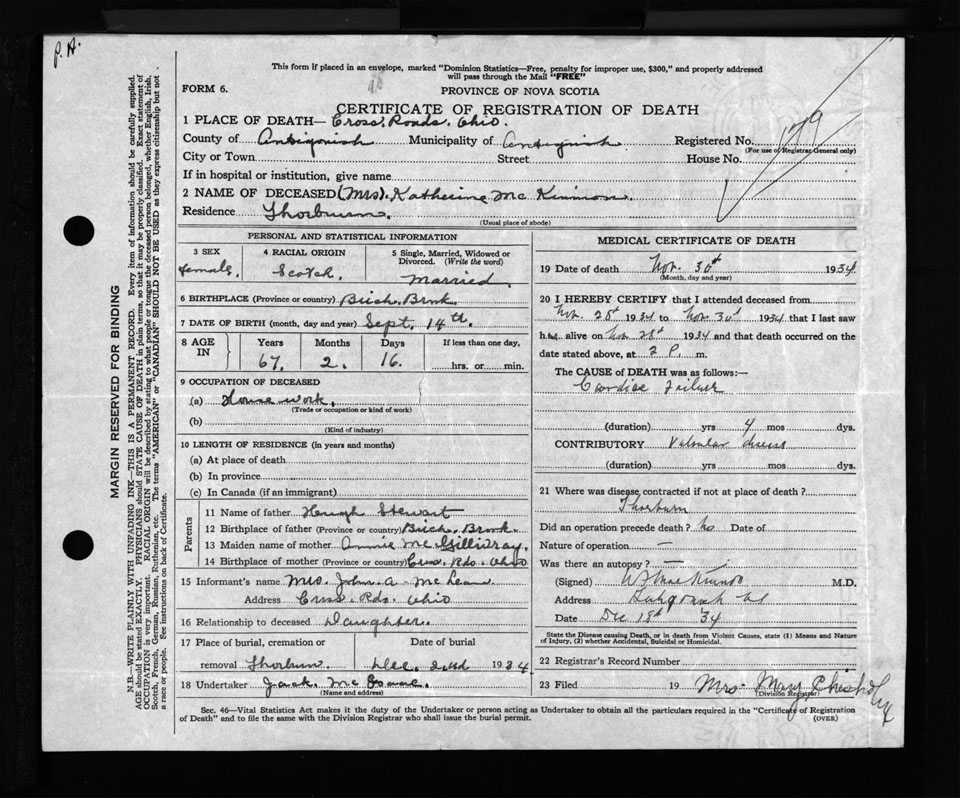 P. A.
This form if placed in an envelope, marked "Dominion Statistics—Free, penalty for improper use, $300," and properly addressed
will pass through the Mail "FREE"
FORM 6.
PROVINCE OF NOVA SCOTIA
CERTIFICATE OF REGISTRATION OF DEATH
1 PLACE OF DEATH— Cross. Roads. Ohio.
County of Antigonish Municipality of Antigonish Registered No.
(For use of Registrar General only)
City or Town Street House No.
If in hospital or institution, give name
2 NAME OF DECEASED (Mrs). Katherine Mc Kinnon.
Residence Thorburn.
(Usual place of abode)
PERSONAL AND STATISTICAL INFORMATION
3 SEX 4 RACIAL ORIGIN 5 Single, Married, Widowed or Divorced. (Write the word)
female. Scotch. Married.
6 BIRTHPLACE (Province or country)
7 DATE OF BIRTH (month, day and year) Sept. 14th.
8 AGE IN Years Months Days If less than one day,
67. 2. 16. hrs. or min.
9 OCCUPATION OF DECEASED
(a) House work.
(Trade or occupation or kind of work)
(b)
(Kind of industry)
10 LENGTH OF RESIDENCE (in years and months)
(a) At place of death
(b) In province
(c) In Canada (if an immigrant)
Parents
11 Name of father Hough Stewart
12 Birthplace of father (Province or country)
13 Maiden name of mother Annie Mc Gillivray.
14 Birthplace of mother (Province or country) Cross. Rds. Ohio
15 Informant's name Mrs. John. A. McLean.
Address Cross. Rds. Ohio
16 Relationship to deceased Daughter.
17 Place of burial, cremation or removal Thorburn. Date of burial Dec. 2nd 1934
18 Undertaker Jack. Mc Isaac.
(Name and address)
MEDICAL CERTIFICATE OF DEATH
19 Date of death Nov. 30th 1934
(Month, day and year)
20 I HEREBY CERTIFY that I attended deceased from
Nov. 28th 1934 to Nov. 30th 1934 that I last saw
her alive on Nov 28th 1934 and that death occurred on the
date stated above, at 2 P. m.
The CAUSE of DEATH was as follows:—
Cardiac Failure
(duration) yrs 4 mos dys.
CONTRIBUTORY Valvular disease
(duration) yrs mos dys.
21 Where was disease contracted if not at place of death?
Thorburn
Did an operation precede death? No Date of
Nature of operation —
Was there an autopsy? —
(Signed) M.D.
Address Antigonish
Date Dec 18th '34
State the Disease causing Death, or in death from Violent Causes, state (1) Means and Nature
of Injury, (2) whether Accidental, Suicidal or Homicidal.
22 Registrar's Record Number
23 Filed 19 Mrs. Mary Chisholm
(Division Registrar)
Sec. 46—Vital Statistics Act makes it the duty of the Undertaker or person acting as Undertaker to obtain all the particulars required in the "Certificate of Registration
of Death" and to file the same with the Division Registrar who shall issue the burial permit.
(OVER)
MARGIN RESERVED FOR BINDING
N.B.—WRITE PLAINLY WITH UNFADING INK—THIS IS A PERMANENT RECORD. Every item of information should be carefully supplied.
AGE should be stated EXACTLY. PHYSICIANS should STATE CAUSE OF DEATH in plain terms, so that it may be properly classified. Exact statement of
OCCUPATION is very important. RACIAL ORIGIN will be described by stating to what people or tongue the deceased person belonged, whether English, Irish,
Scotch, French, German, Russian, Ruthenian, etc. The terms "AMERICAN" or "CANADIAN" SHOULD NOT BE USED as they express citizenship but not
a race or people. See instructions on back of Certificate.